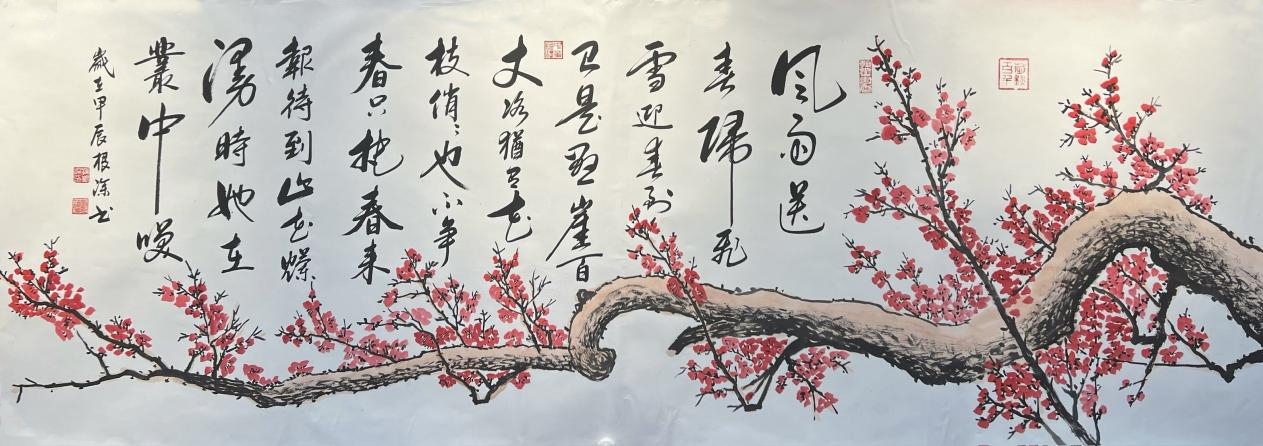 风雨送
春歸飛
雪迎春到
已是悬崖百
丈冰猶有花
枝俏〻也不争
春只把春来
報待到山花爛
漫時她在
叢中笑
歲在甲辰根深书